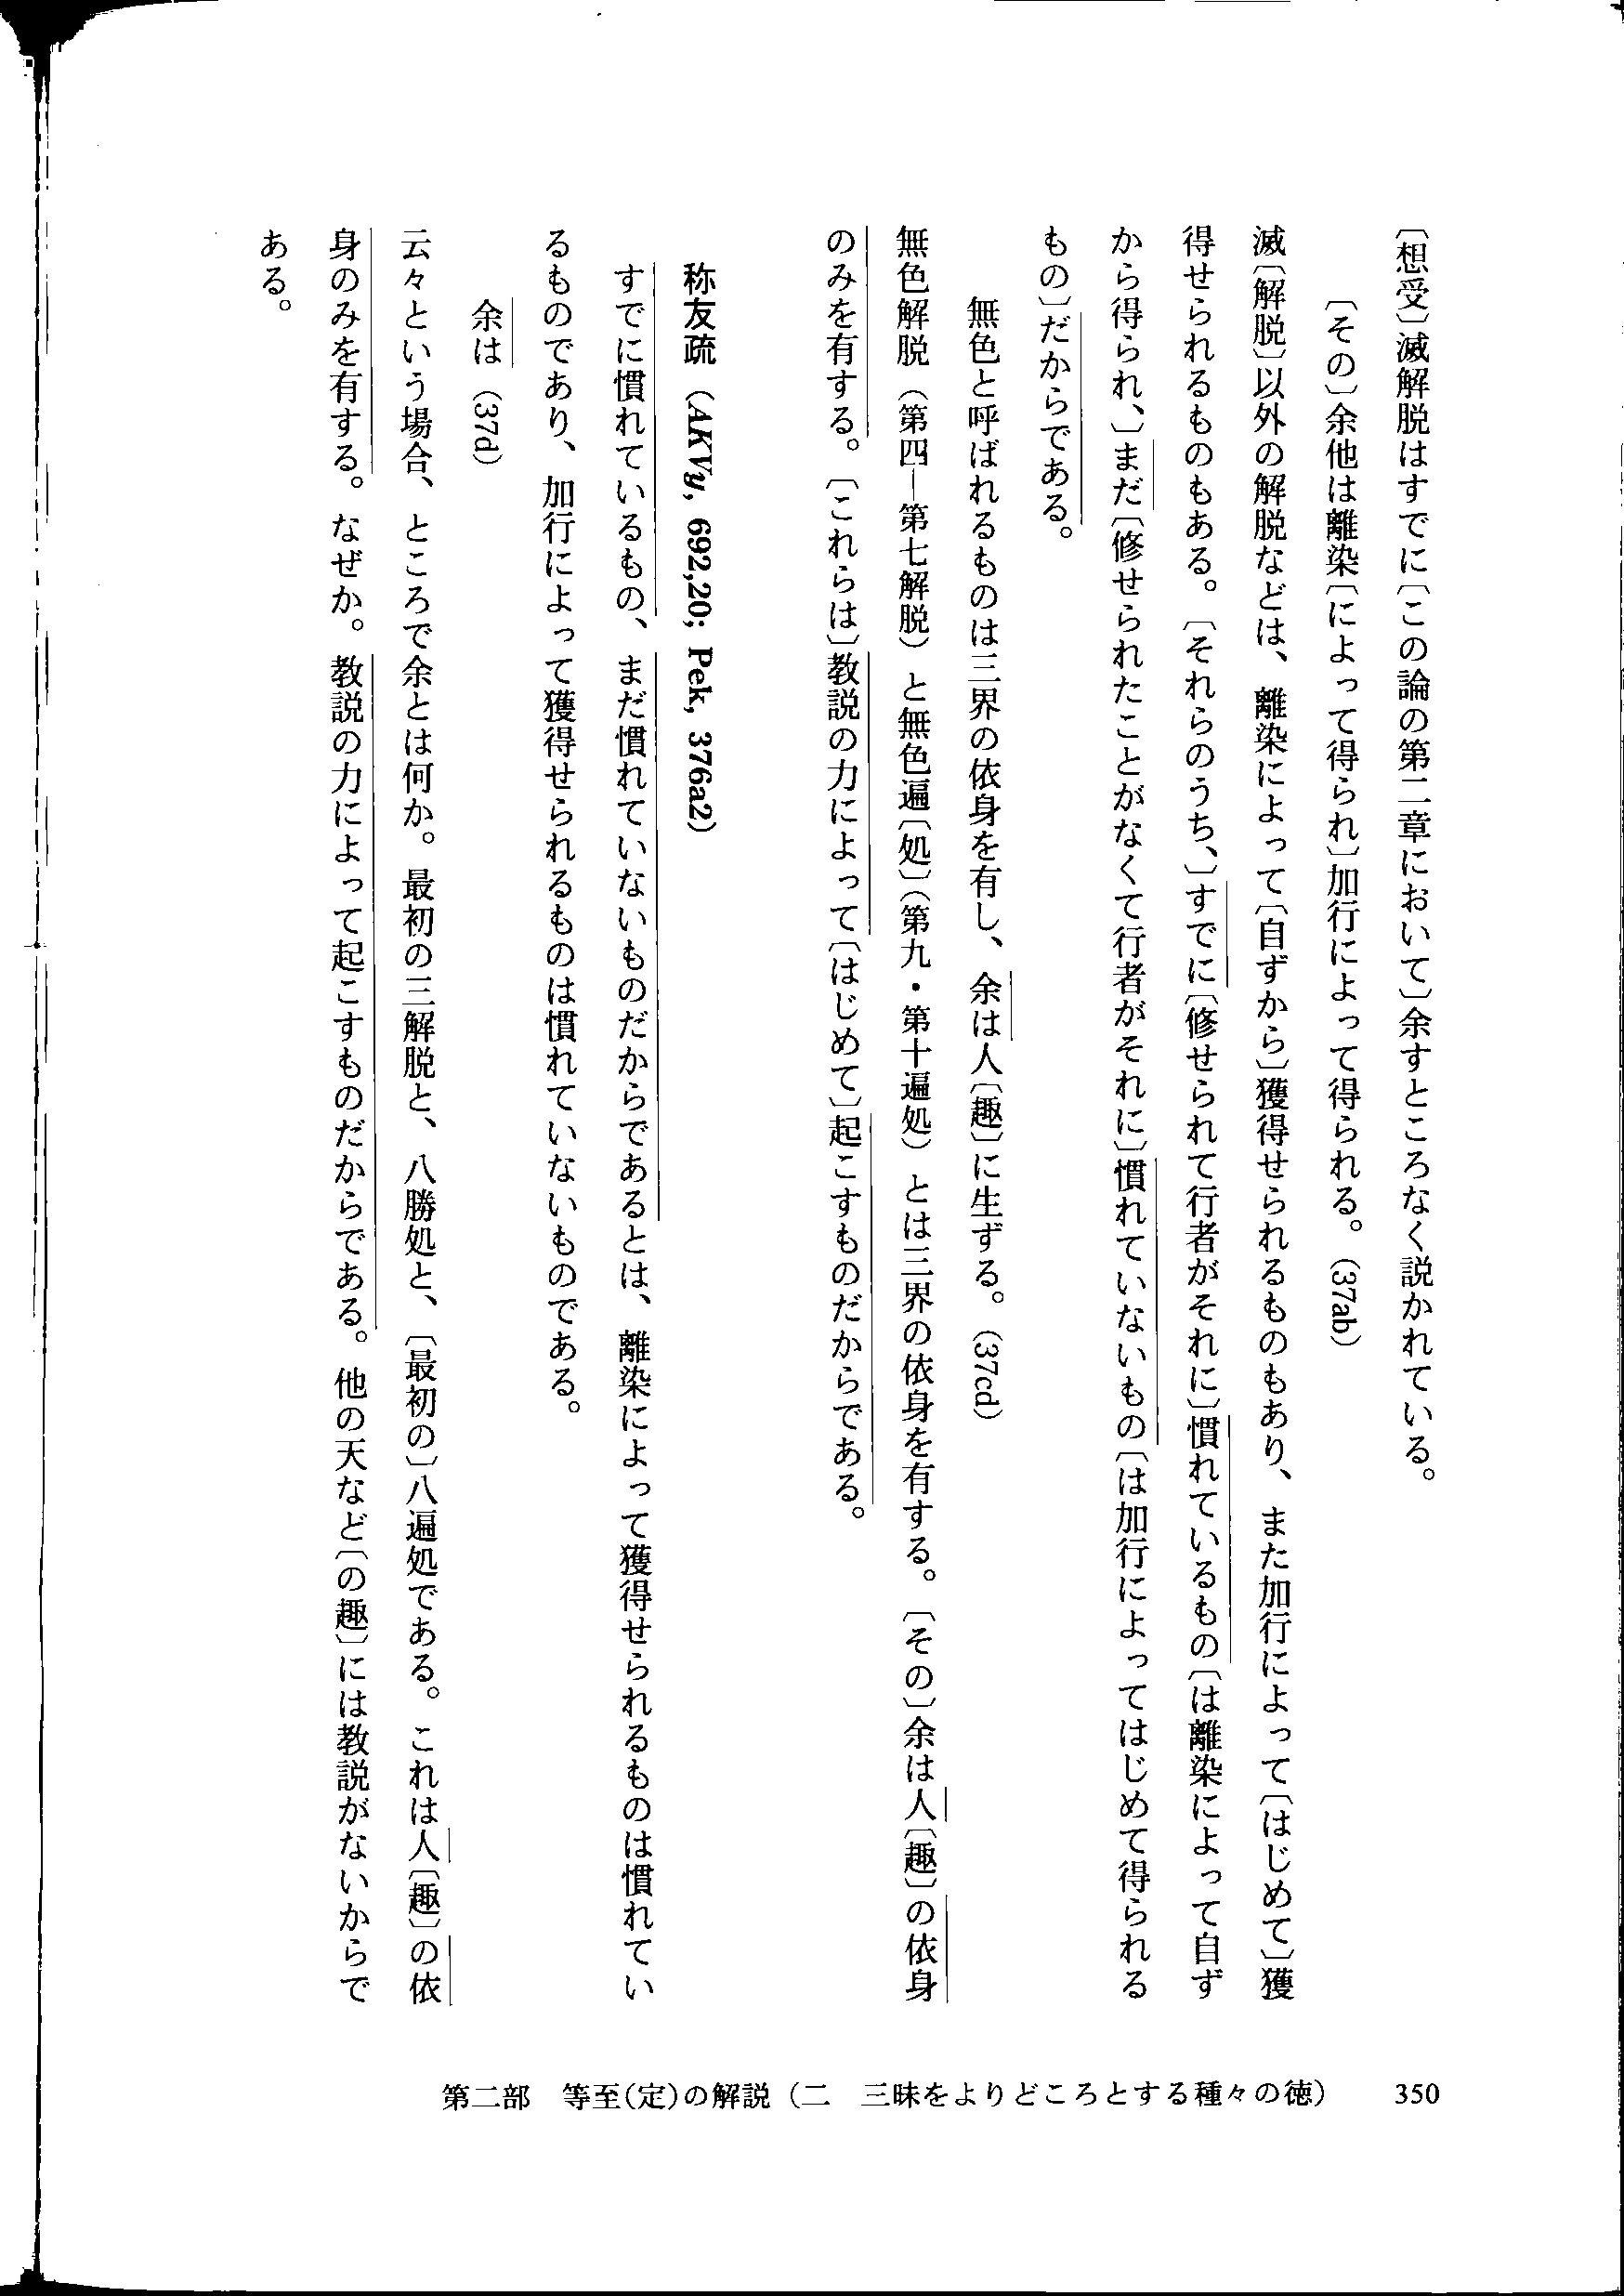 〔想受〕滅解脱はすでに〔この論の第二章において〕余すところなく説かれている。
〔その〕余他は離染〔によって得られ〕加行によって得られる。(37ab)
滅〔解脱〕以外の解脱などは、離染によって〔自ずから〕獲得せられるものもあり、また加行によって〔はじめて〕獲
得せられるものもある。〔それらのうち、〕すでに〔修せられて行者がそれに〕慣れているもの〔は離染によって自ず
から得られ、〕まだ〔修せられたことがなくて行者がそれに〕慣れていないもの〔は加行によってはじめて得られる
もの〕だからである。
無色と呼ばれるものは三界の依身を有し、余は人〔趣〕に生ずる。(37cd)
無色解脱（第四―第七解脱）と無色遍〔処〕（第九・第十遍処）とは三界の依身を有する。〔その〕余は人〔趣〕の依身
のみを有する。〔これらは〕教説の力によって〔はじめて〕起こすものだからである。
称友疏（AKVy, 692,20; Pek, 376a2）
すでに慣れているもの、まだ慣れていないものだからであるとは、離染によって獲得せられるものは慣れてい
るものであり、加行によって獲得せられるものは慣れていないものである。
余は (37d)
云々という場合、ところで余とは何か。最初の三解脱と、八勝処と、〔最初の〕八遍処である。これは人〔趣〕の依
身のみを有する。なぜか。教説の力によって起こすものだからである。他の天など〔の趣〕には教説がないからで
ある。
第二部　等至(定)の解説（二　三昧をよりどころとする種々の徳）　350